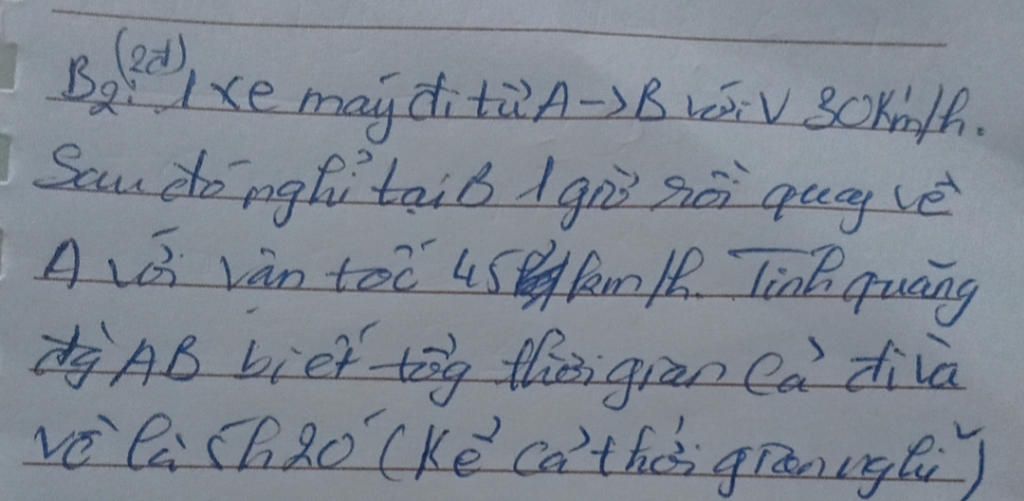 B2: (2đ) 1 xe máy đi từ A -> B với V 30Km/h.
Sau đó nghỉ tại B 1 giờ rồi quay về
A với vận tốc 45 km/h. Tính quãng
đg AB biết tổg thời gian cả đi và
về là 5h20' (Kể cả thời gian nghỉ)